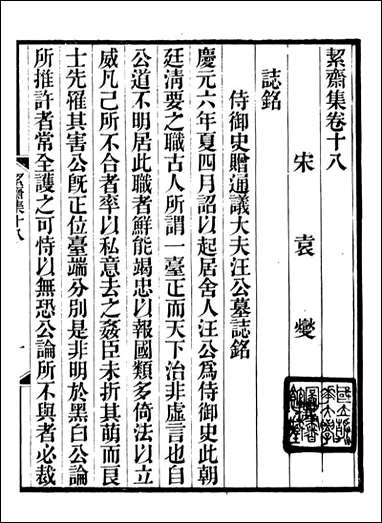 絜齋集卷十八
宋袁燮
誌銘
侍御史贈通議大夫汪公墓誌銘
慶元六年夏四月詔以起居舍人汪公為侍御史此朝
廷淸要之職古人所謂一臺正而天下治非虛言也自
公道不明居此職者鮮能竭忠以報國類多倚法以立
威凡己所不合者率以私意去之姦臣未折其萌而良
士先罹其害公旣正位臺端分別是非明於黑白公論
所推許者常全護之可恃以無恐公論所不與者必裁
絜齋集十八
一